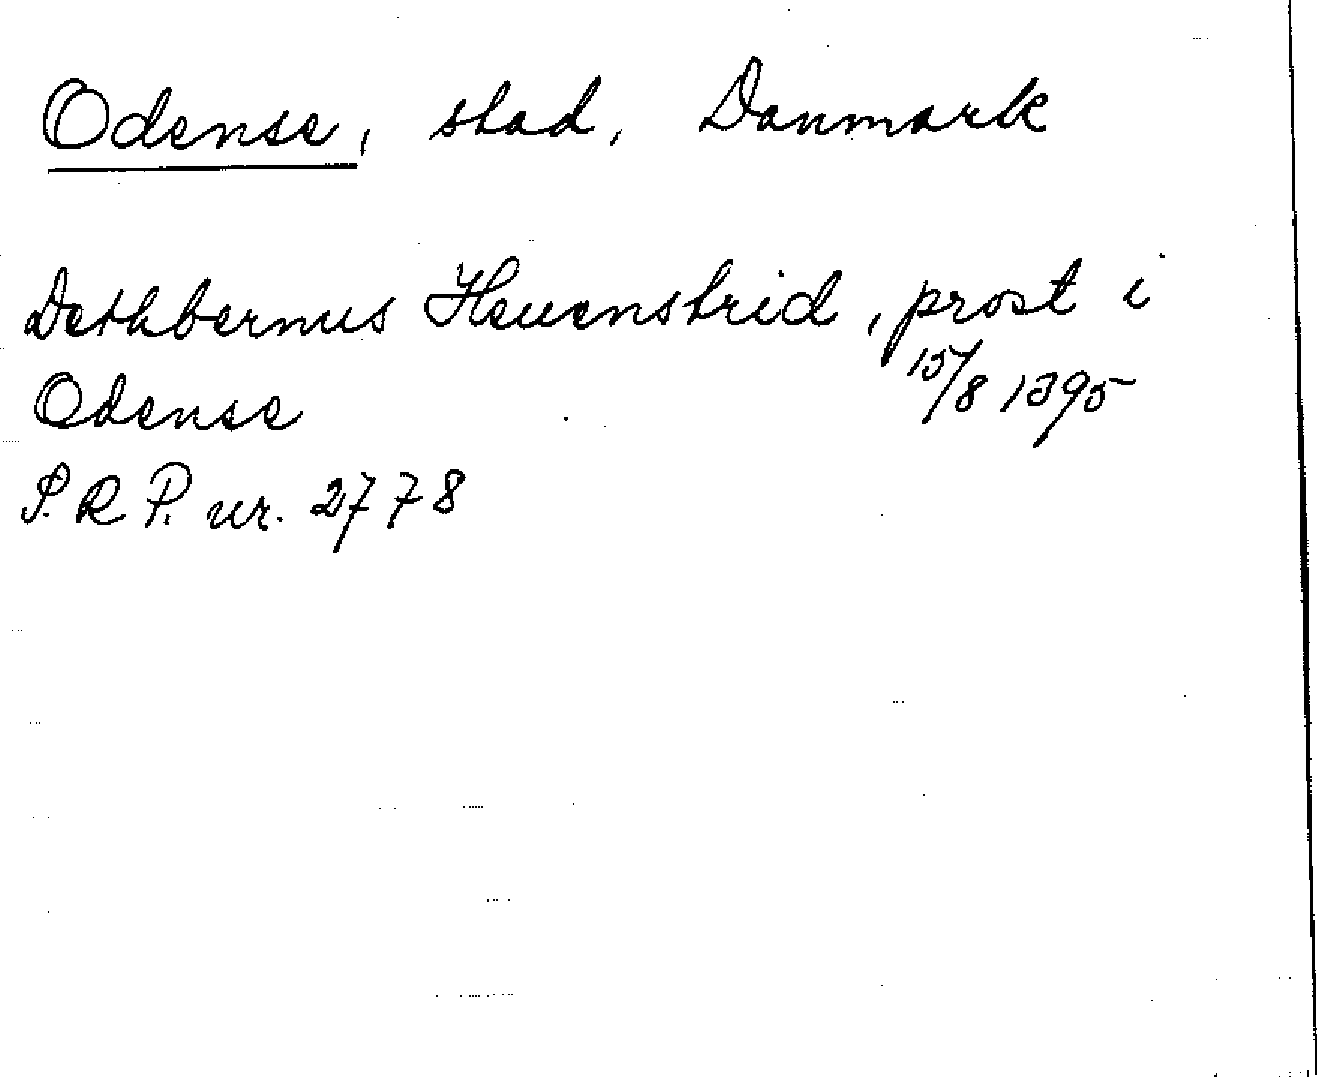 Odense, stad, Danmark
Dethbernus Heuenstrid, prost i
Odense 15/8 1395
S.R.P. nr. 2778